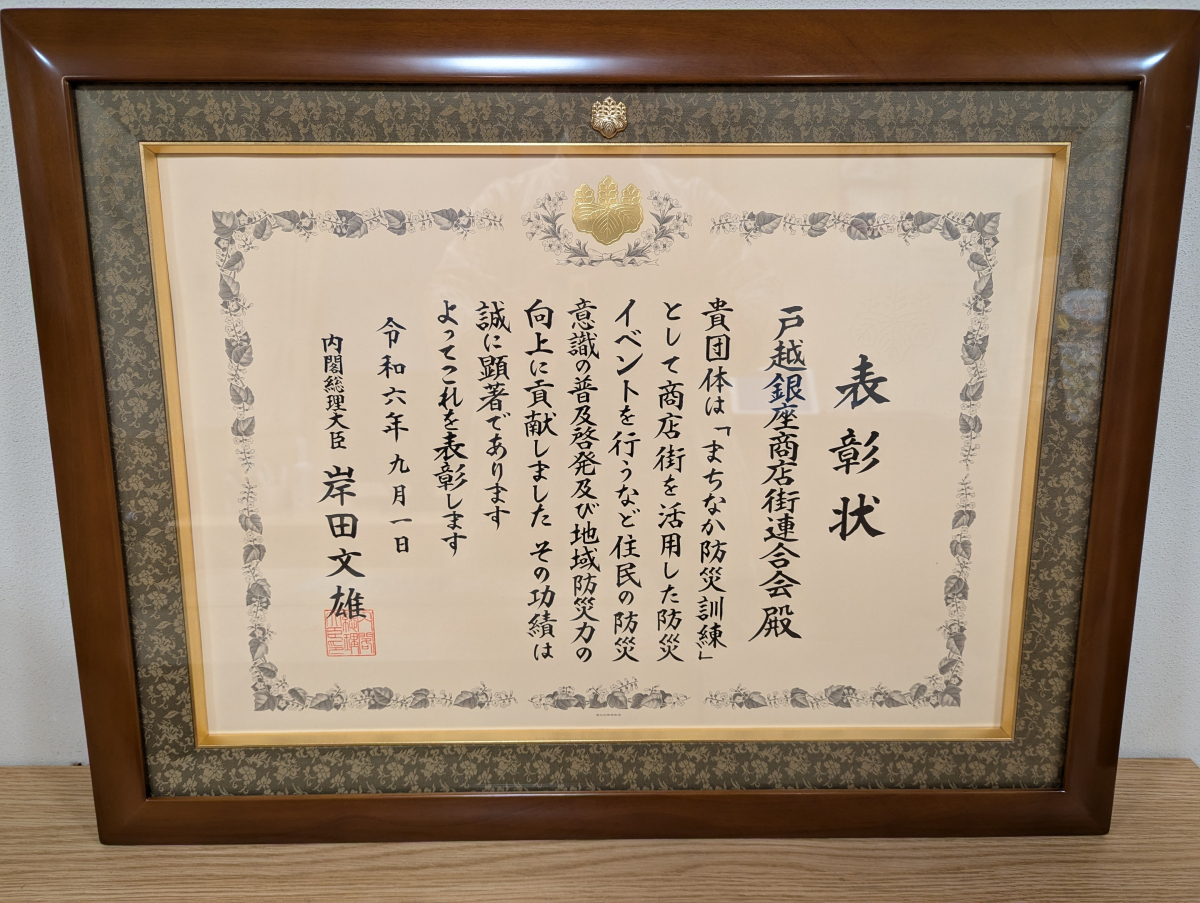 表彰状
戸越銀座商店街連合会殿
貴団体は「まちなか防災訓練」
として商店街を活用した防災
イベントを行うなど住民の防災
意識の普及啓発及び地域防災力の
向上に貢献しました その功績は
誠に顕著であります
よってこれを表彰します
令和六年九月一日
内閣総理大臣 岸田文雄